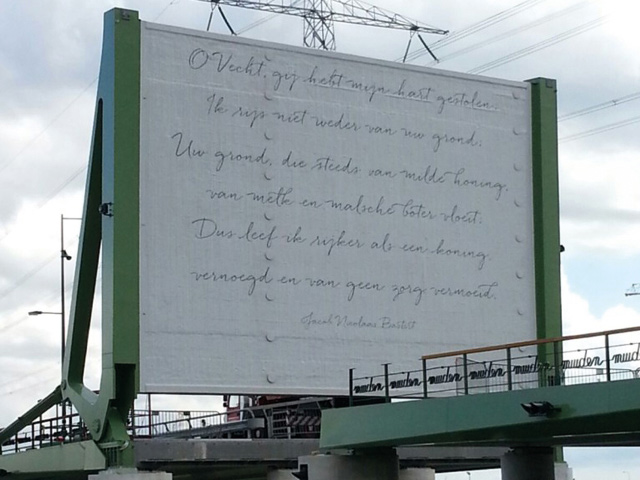 O Vecht, gij hebt mijn hart gestolen.
Ik rijs niet weder van uw grond;
Uw grond, die steeds van milde honing,
van melk en malsche boter vloeit;
Dus leef ik rijker als een koning,
vernoegd en van geen zorg vermoeid.
Jacob Nicolaas Bastert
muiden muiden muiden muiden muiden muiden muiden